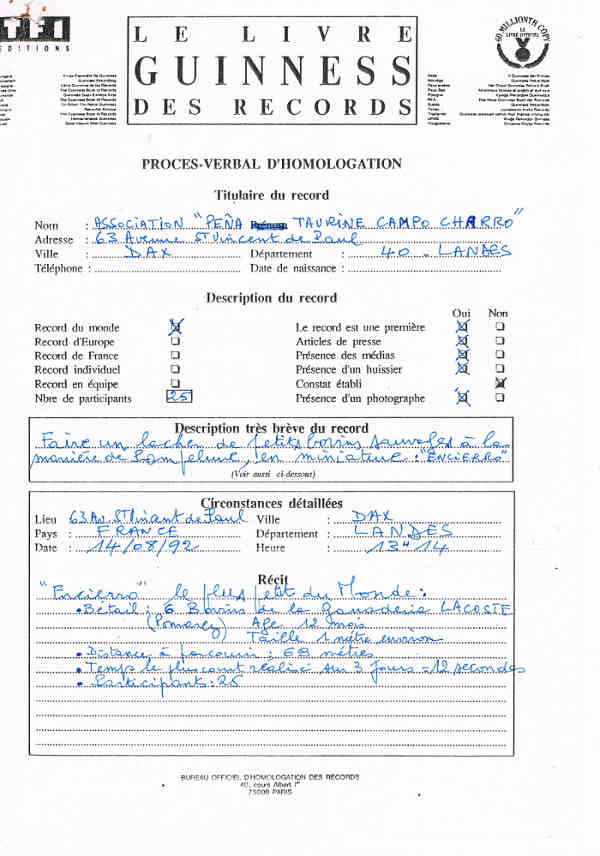 TF1
EDITIONS
LE LIVRE
GUINNESS
DES RECORDS
60 MILLIONTH COPY
LE LIVRE OFFICIEL
PROCES-VERBAL D'HOMOLOGATION
Titulaire du record
Nom : ASSOCIATION "PEÑA TAURINE CAMPO CHARRO"
Adresse : 63 Avenue St Vincent de Paul
Ville : DAX Département : 40 - LANDES
Téléphone : Date de naissance :
Description du record
Oui Non
Record du monde Le record est une première
Record d'Europe Articles de presse
Record de France Présence des médias
Record individuel Présence d'un huissier
Record en équipe Constat établi
Nbre de participants 25 Présence d'un photographe
Description très brève du record
Faire un lacher de petits bovins sauvages à la
manière de Pampelune, en miniature : "ENCIERRO"
(Voir aussi ci-dessous)
Circonstances détaillées
Lieu : 63 Av. St Vincent de Paul Ville : DAX
Pays : FRANCE Département : LANDES
Date : 14/08/92 Heure : 13H14
Récit
"Encierro" le plus petit du Monde :
• Bétail : 6 Bovins de la Ganaderia LACOSTE
(Pomarez) Age 12 mois
Taille 1 mètre environ
• Distance à parcourir : 68 mètres
• Temps le plus court réalisé sur 3 jours = 12 secondes
• Participants : 25
BUREAU OFFICIEL D'HOMOLOGATION DES RECORDS
40, cours Albert 1er
75008 PARIS